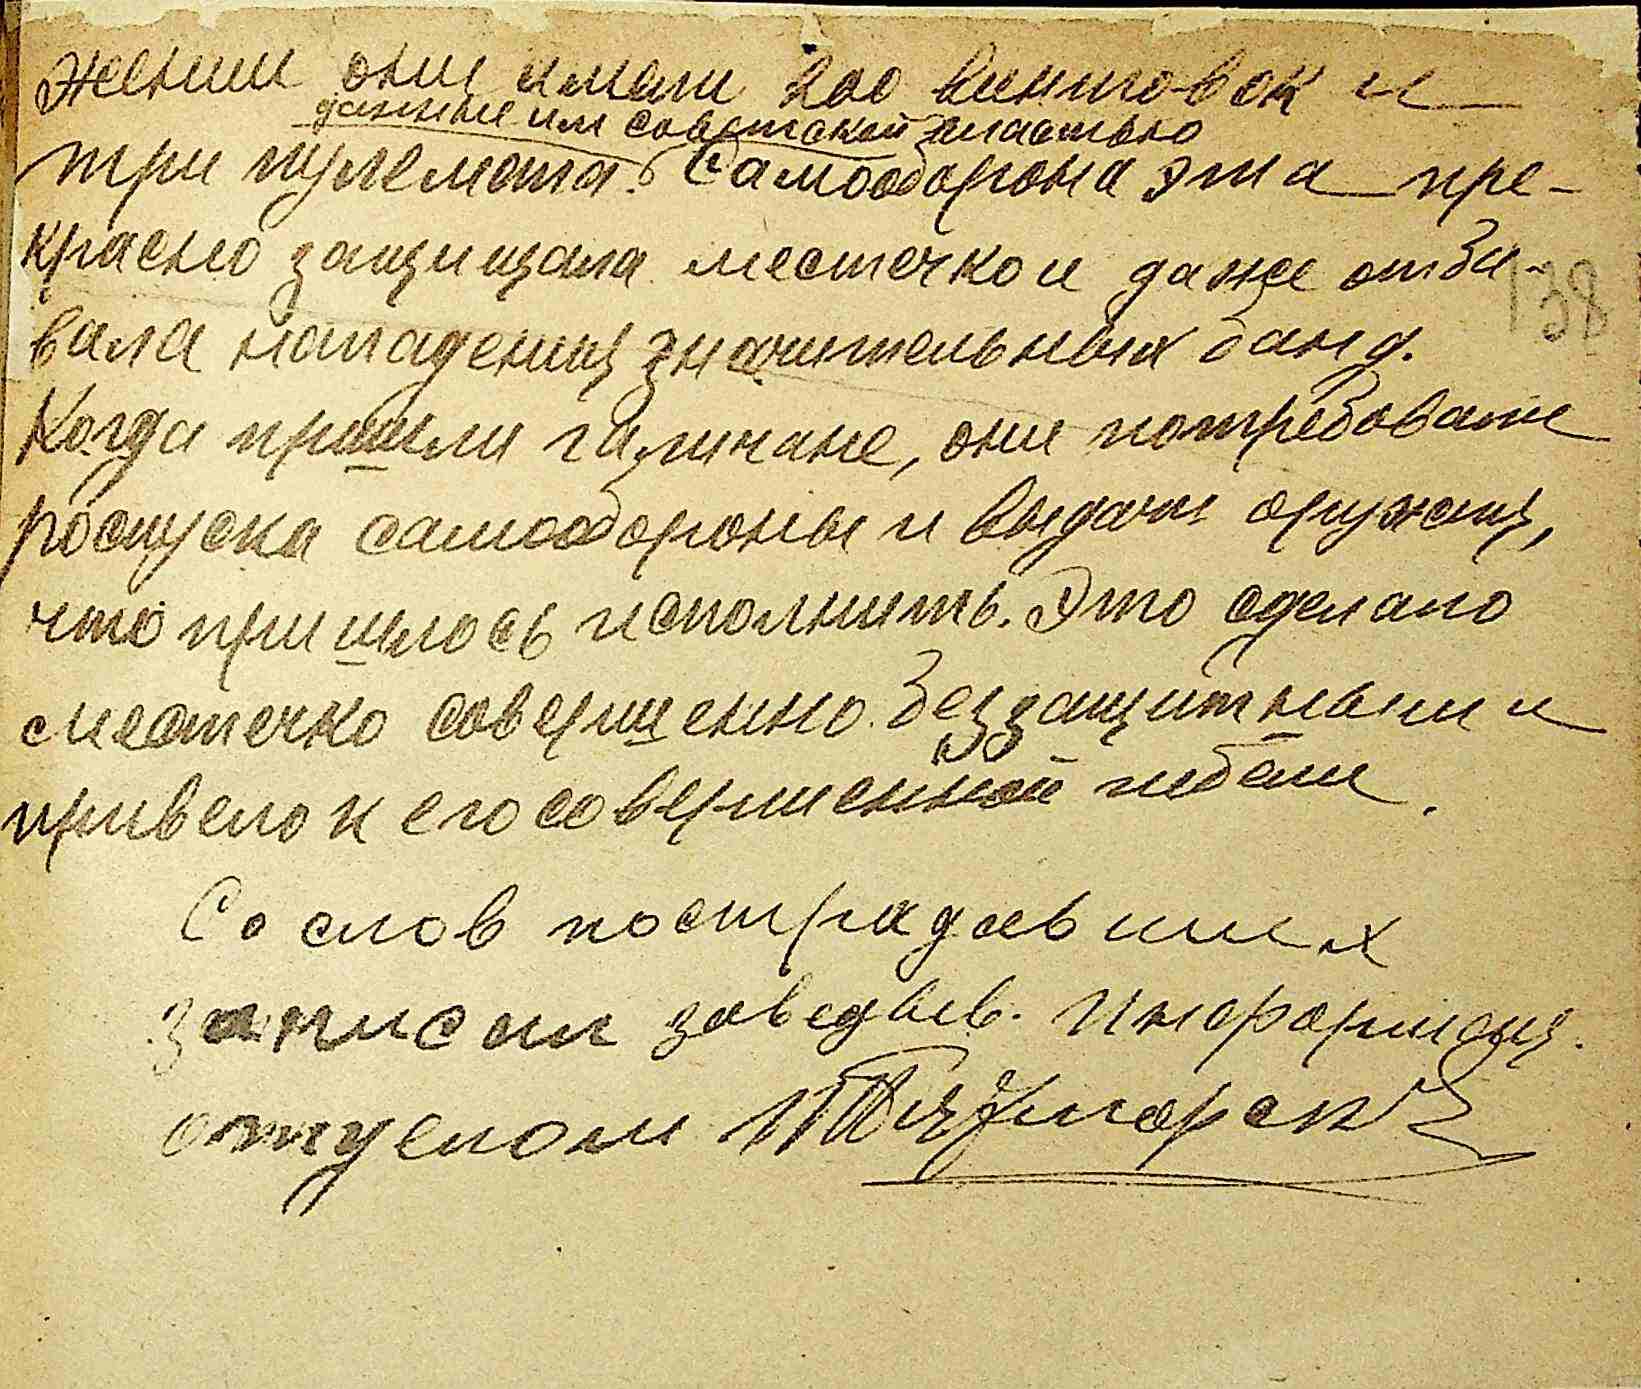 жении они имели 200 винтовок и
данные им советской властью
три пулемета. Самооборона эта пре-
красно защищала местечко и даже отби-
138
вала нападения значительных банд.
Когда пришли галичане, они потребовали
роспуска самообороны и выдачи оружия,
что пришлось исполнить. Это сделало
местечко совершенно беззащитным и
привело к его совершенной гибели.
Со слов пострадавших
записал заведыв. Информац.
отделом